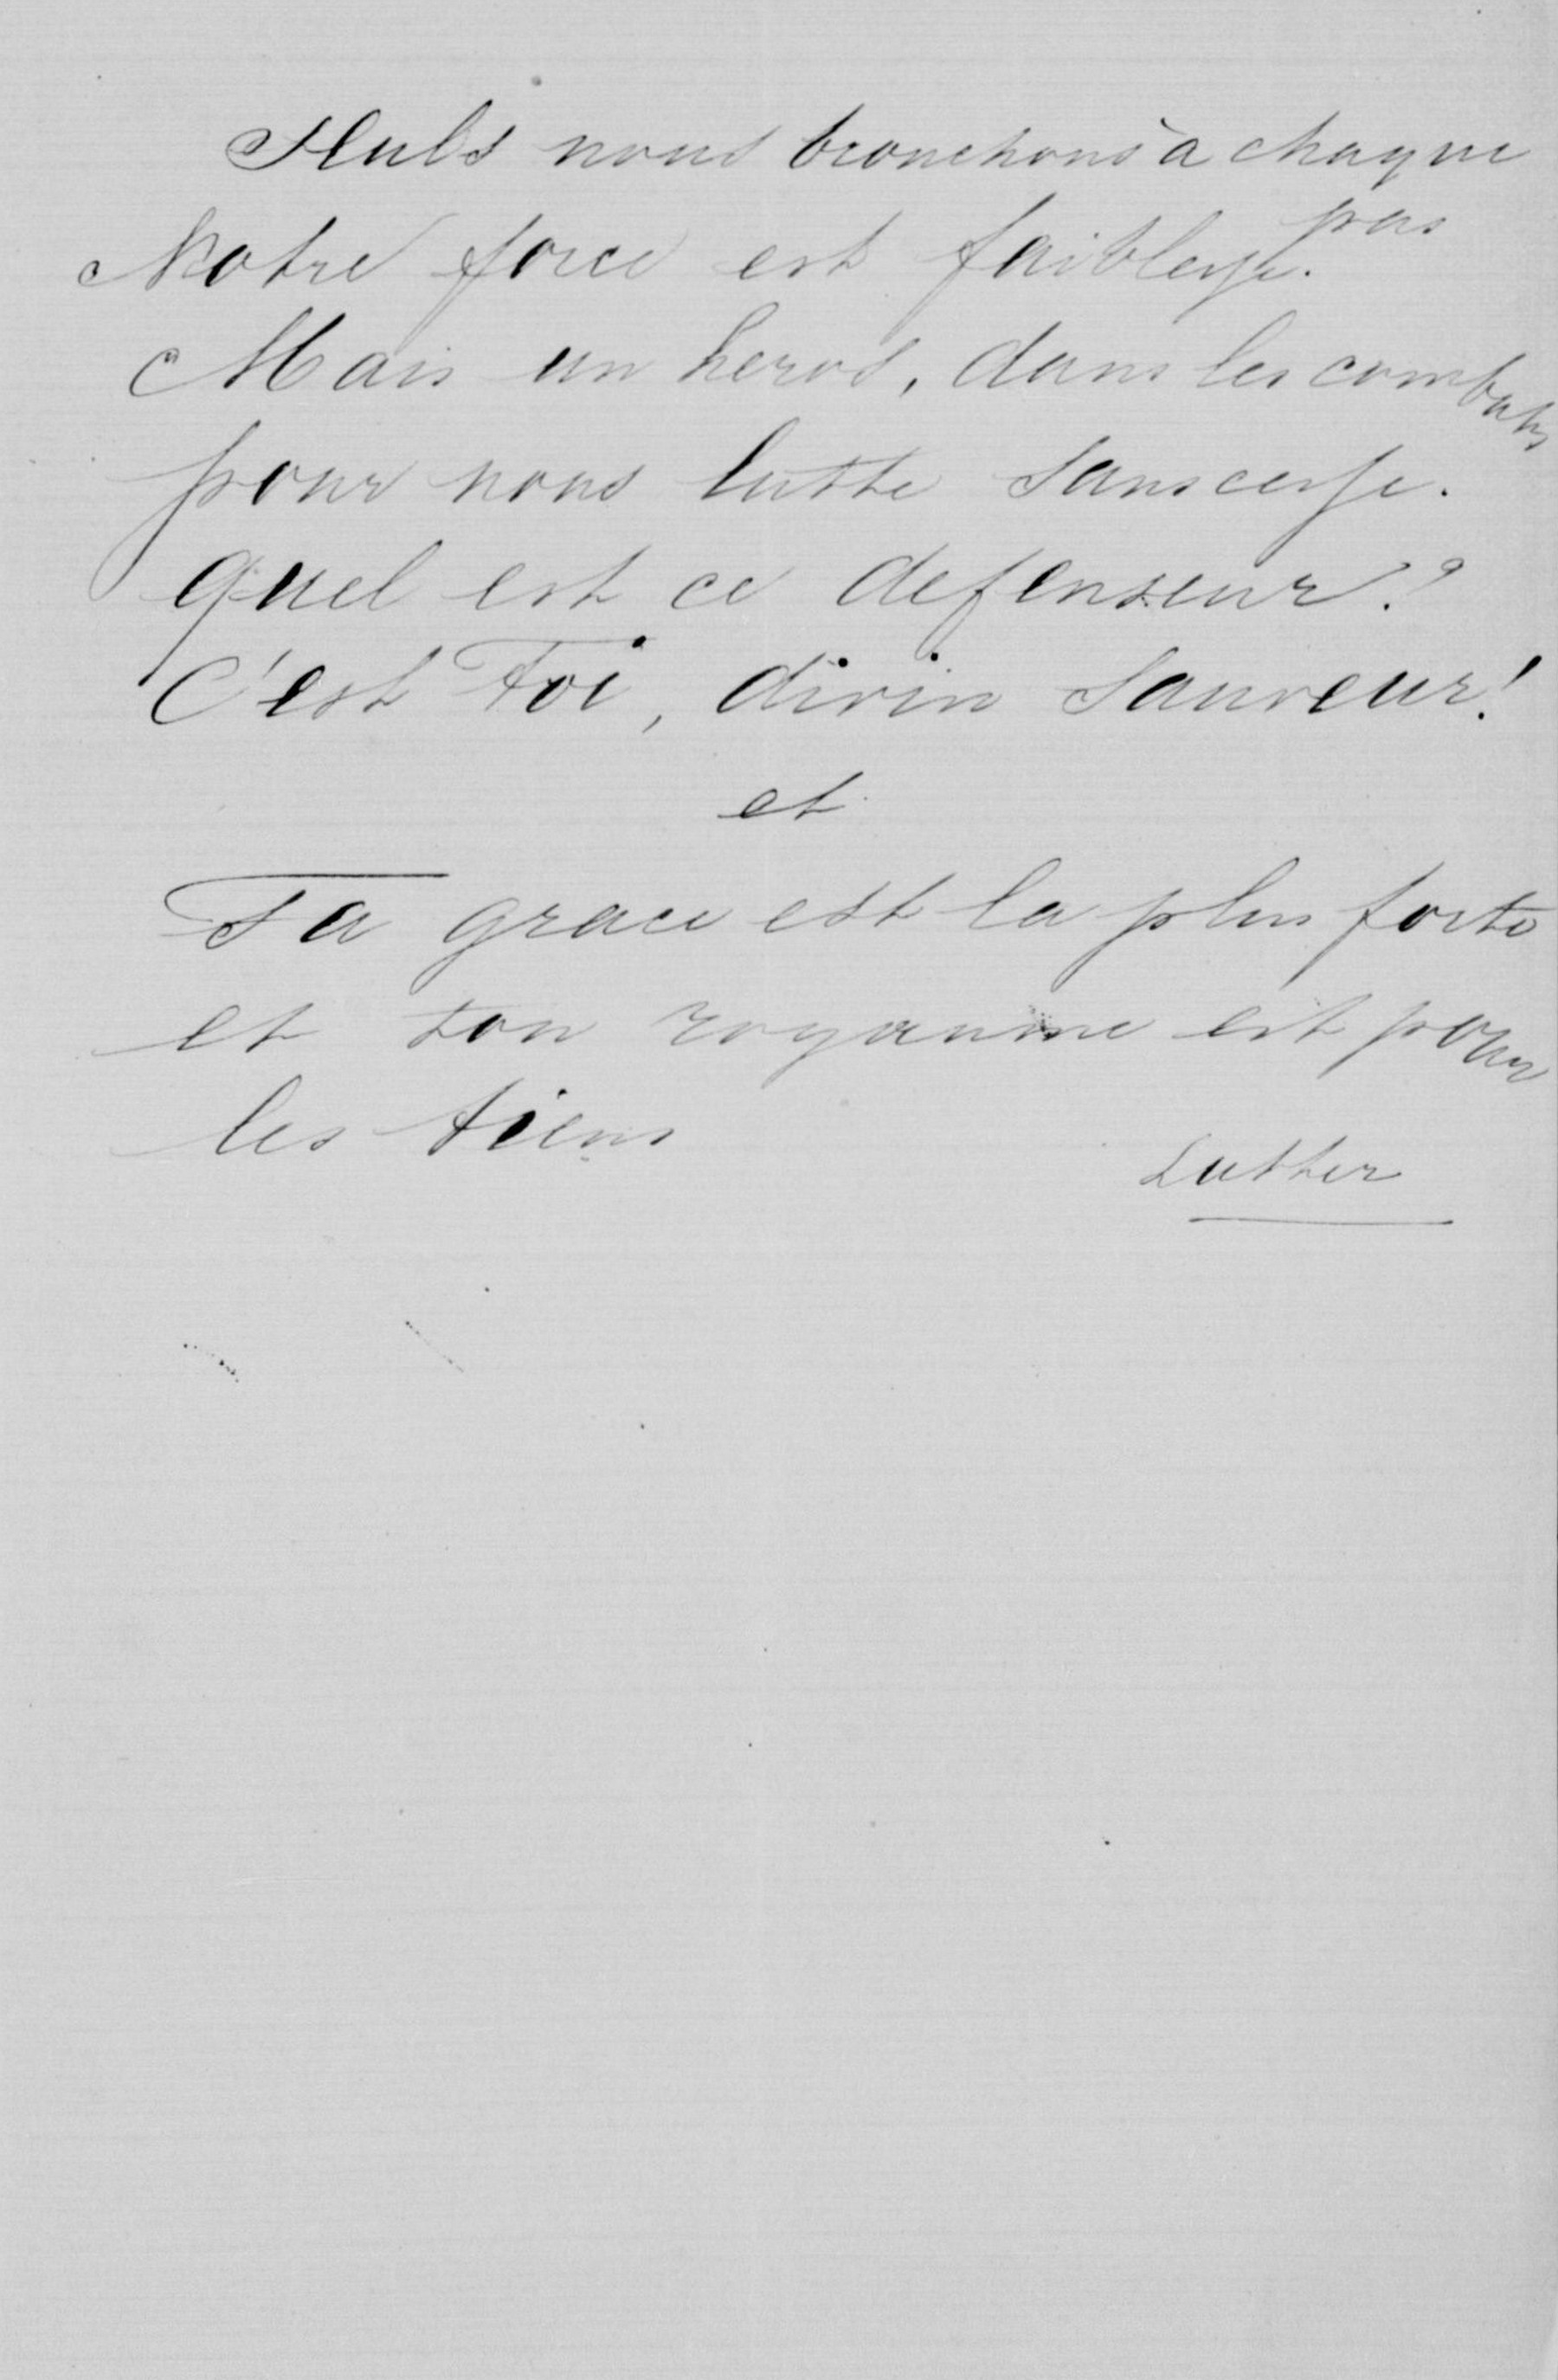 Seuls nous bronchons à chaque
pas
Notre force est faiblesse.
Mais un heros, dans les combats
pour nous lutte sans cesse.
quel est ce defenseur?
C'est Toi, divin Sauveur!
et
Ta grace est la plus forte
et ton royaume est pour
les tiens
Luther